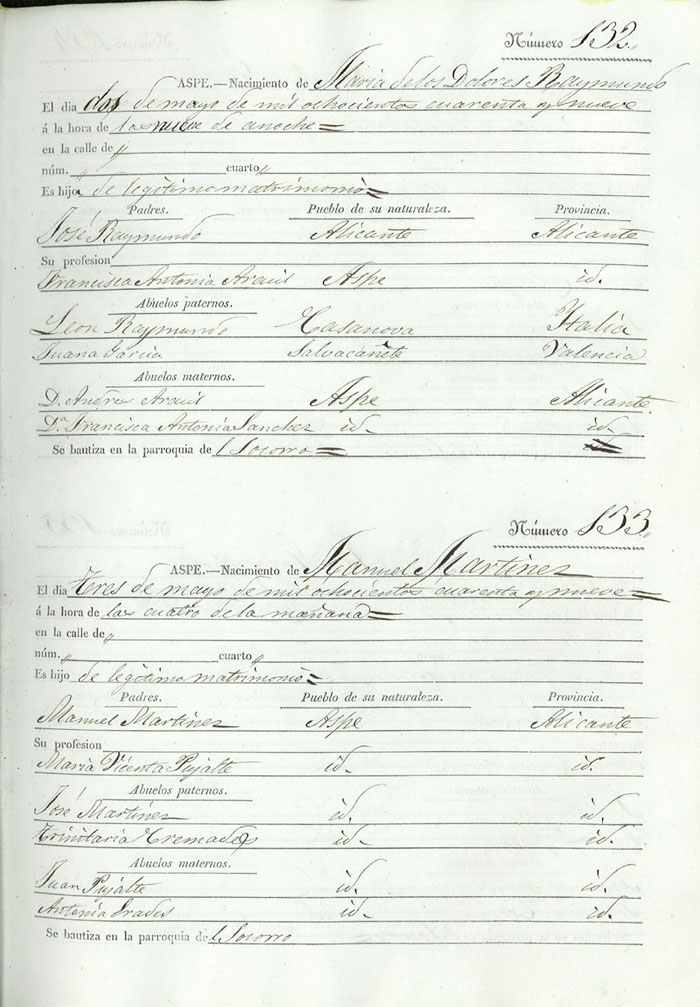 Número 132.
ASPE.—Nacimiento de Maria de los Dolores Raymundo
El dia dos de mayo de mil ochocientos cuarenta y nueve
á la hora de las nueve de anoche=
en la calle de „
núm. „ cuarto „
Es hija de legitimo matrimonio=
Padres. Pueblo de su naturaleza. Provincia.
José Raymundo Alicante Alicante
Su profesion
Francisca Antonia Araul Aspe id.
Abuelos paternos.
Leon Raymundo Casanova Italia
Juana Garcia Salvacañete Valencia
Abuelos maternos.
D. Andres Araul Aspe Alicante
Dª Francisca Antonia Sanchez id. id.
Se bautiza en la parroquia de l Socorro=
Número 133.
ASPE.—Nacimiento de Manuel Martinez
El dia tres de mayo de mil ochocientos cuarenta y nueve=
á la hora de las cuatro de la mañana=
en la calle de „
núm. „ cuarto „
Es hijo de legitimo matrimonio=
Padres. Pueblo de su naturaleza. Provincia.
Manuel Martinez Aspe Alicante
Su profesion
Maria Vicenta Pujalte id. id.
Abuelos paternos.
José Martinez id. id.
Trinitaria Cremades id. id.
Abuelos maternos.
Juan Pujalte id. id.
Antonia id. id.
Se bautiza en la parroquia de l Socorro